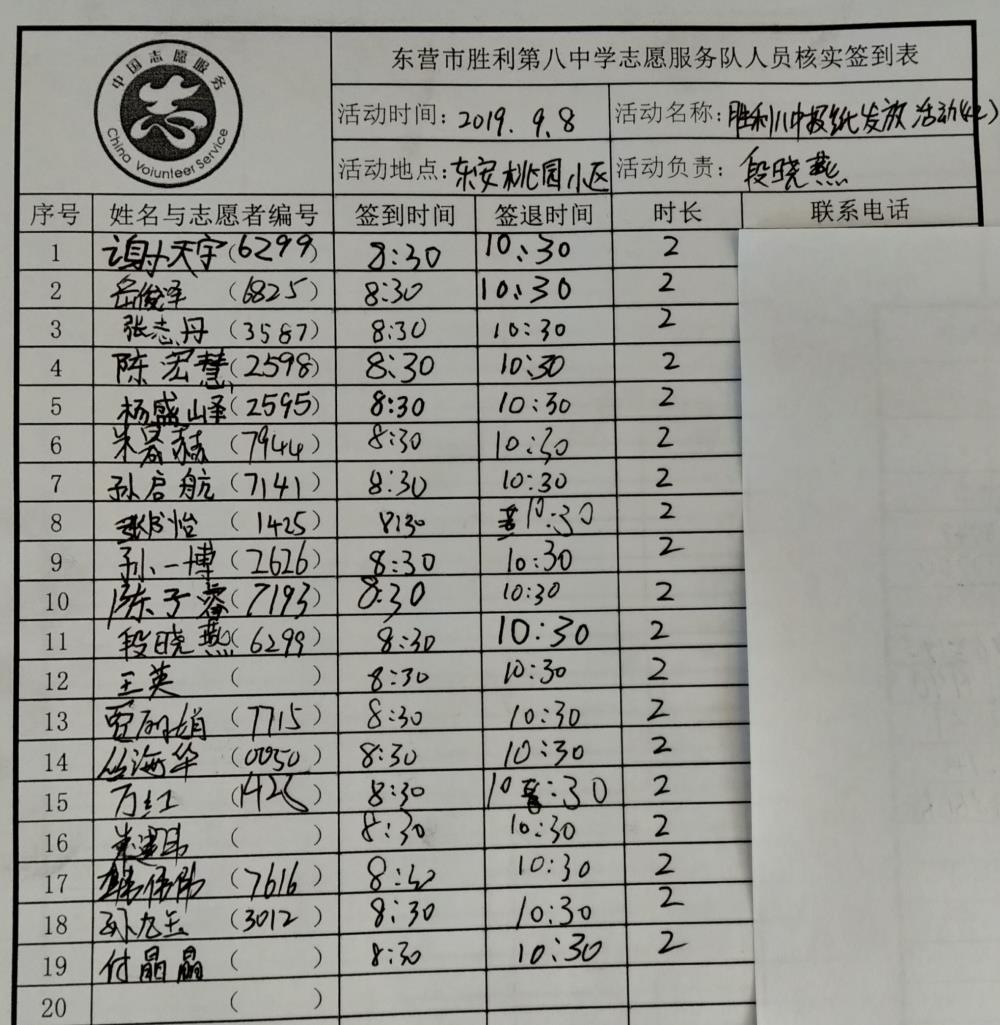 中国志愿服务
志
China Volunteer Service
东营市胜利第八中学志愿服务队人员核实签到表
活动时间: 2019.9.8 活动名称: 胜利八中报纸发放活动(42)
活动地点: 东安桃园小区 活动负责: 段晓燕
序号 姓名与志愿者编号 签到时间 签退时间 时长 联系电话
1 谢天宇(6299) 8:30 10:30 2
2 岳俊泽 (6825) 8:30 10:30 2
3 张志丹 (3587) 8:30 10:30 2
4 陈宏慧(2598) 8:30 10:30 2
5 杨盛峄(2595) 8:30 10:30 2
6 (7944) 8:30 10:30 2
7 孙启航 (7141) 8:30 10:30 2
8 (1425) 8:30 10:30 2
9 孙一博 (2626) 8:30 10:30 2
10 陈于睿(7193) 8:30 10:30 2
11 段晓燕(6299) 8:30 10:30 2
12 王英 ( ) 8:30 10:30 2
13 贾丽娟 (7715) 8:30 10:30 2
14 丛海华 (0050) 8:30 10:30 2
15 万红 (1425) 8:30 10:30 2
16 ( ) 8:30 10:30 2
17 (7616) 8:30 10:30 2
18 (3012) 8:30 10:30 2
19 付晶晶 ( ) 8:30 10:30 2
20 ( )